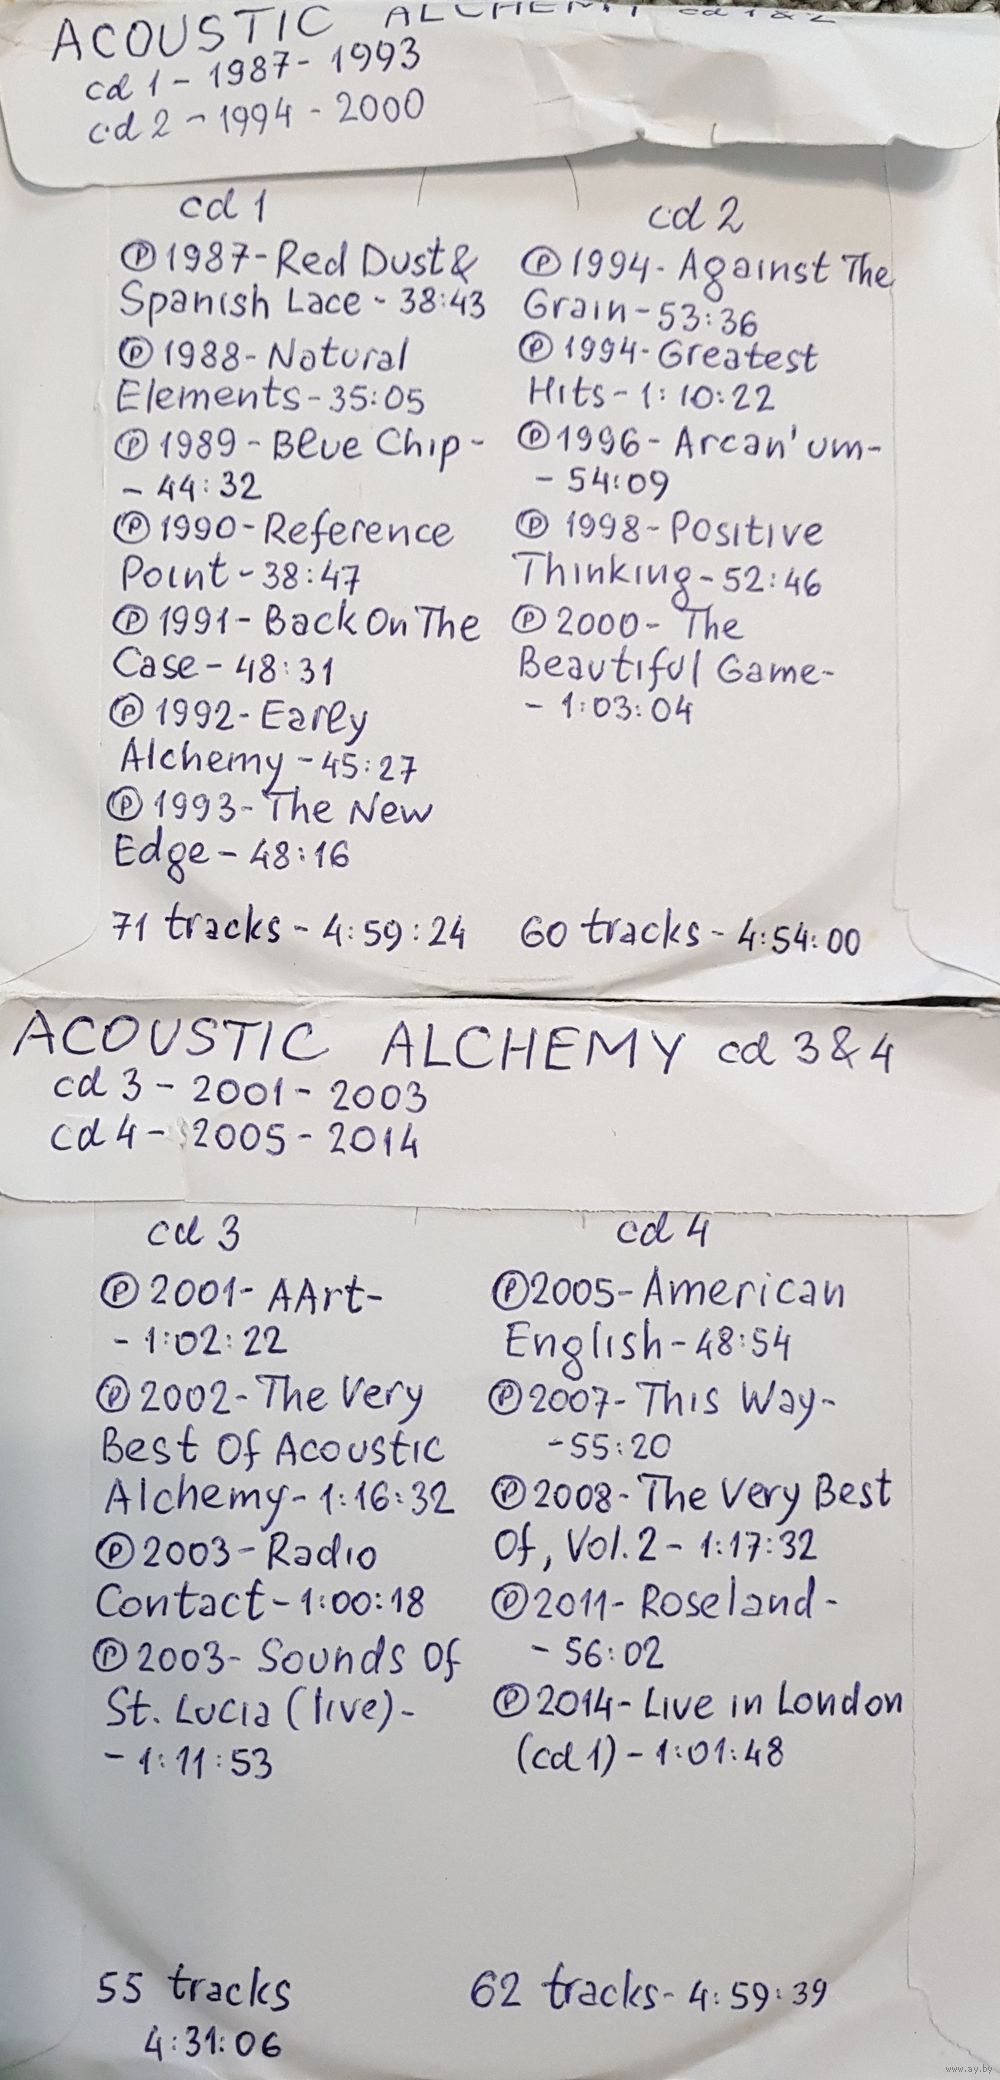 ACOUSTIC ALCHEMY cd 1 & 2
cd 1 - 1987 - 1993
cd 2 - 1994 - 2000
cd 1
Ⓟ 1987 - Red Dust &
Spanish Lace - 38:43
Ⓟ 1988 - Natural
Elements - 35:05
Ⓟ 1989 - Blue Chip -
- 44:32
Ⓟ 1990 - Reference
Point - 38:47
Ⓟ 1991 - Back On The
Case - 48:31
Ⓟ 1992 - Early
Alchemy - 45:27
Ⓟ 1993 - The New
Edge - 48:16
71 tracks - 4:59:24
cd 2
Ⓟ 1994 - Against The
Grain - 53:36
Ⓟ 1994 - Greatest
Hits - 1:10:22
Ⓟ 1996 - Arcan'um -
- 54:09
Ⓟ 1998 - Positive
Thinking - 52:46
Ⓟ 2000 - The
Beautiful Game -
- 1:03:04
60 tracks - 4:54:00
ACOUSTIC ALCHEMY cd 3 & 4
cd 3 - 2001 - 2003
cd 4 - 2005 - 2014
cd 3
Ⓟ 2001 - AArt -
- 1:02:22
Ⓟ 2002 - The Very
Best Of Acoustic
Alchemy - 1:16:32
Ⓟ 2003 - Radio
Contact - 1:00:18
Ⓟ 2003 - Sounds Of
St. Lucia (live) -
- 1:11:53
55 tracks
4:31:06
cd 4
Ⓟ 2005 - American
English - 48:54
Ⓟ 2007 - This Way -
- 55:20
Ⓟ 2008 - The Very Best
Of, Vol. 2 - 1:17:32
Ⓟ 2011 - Roseland -
- 56:02
Ⓟ 2014 - Live in London
(cd 1) - 1:01:48
62 tracks - 4:59:39
www.ay.by